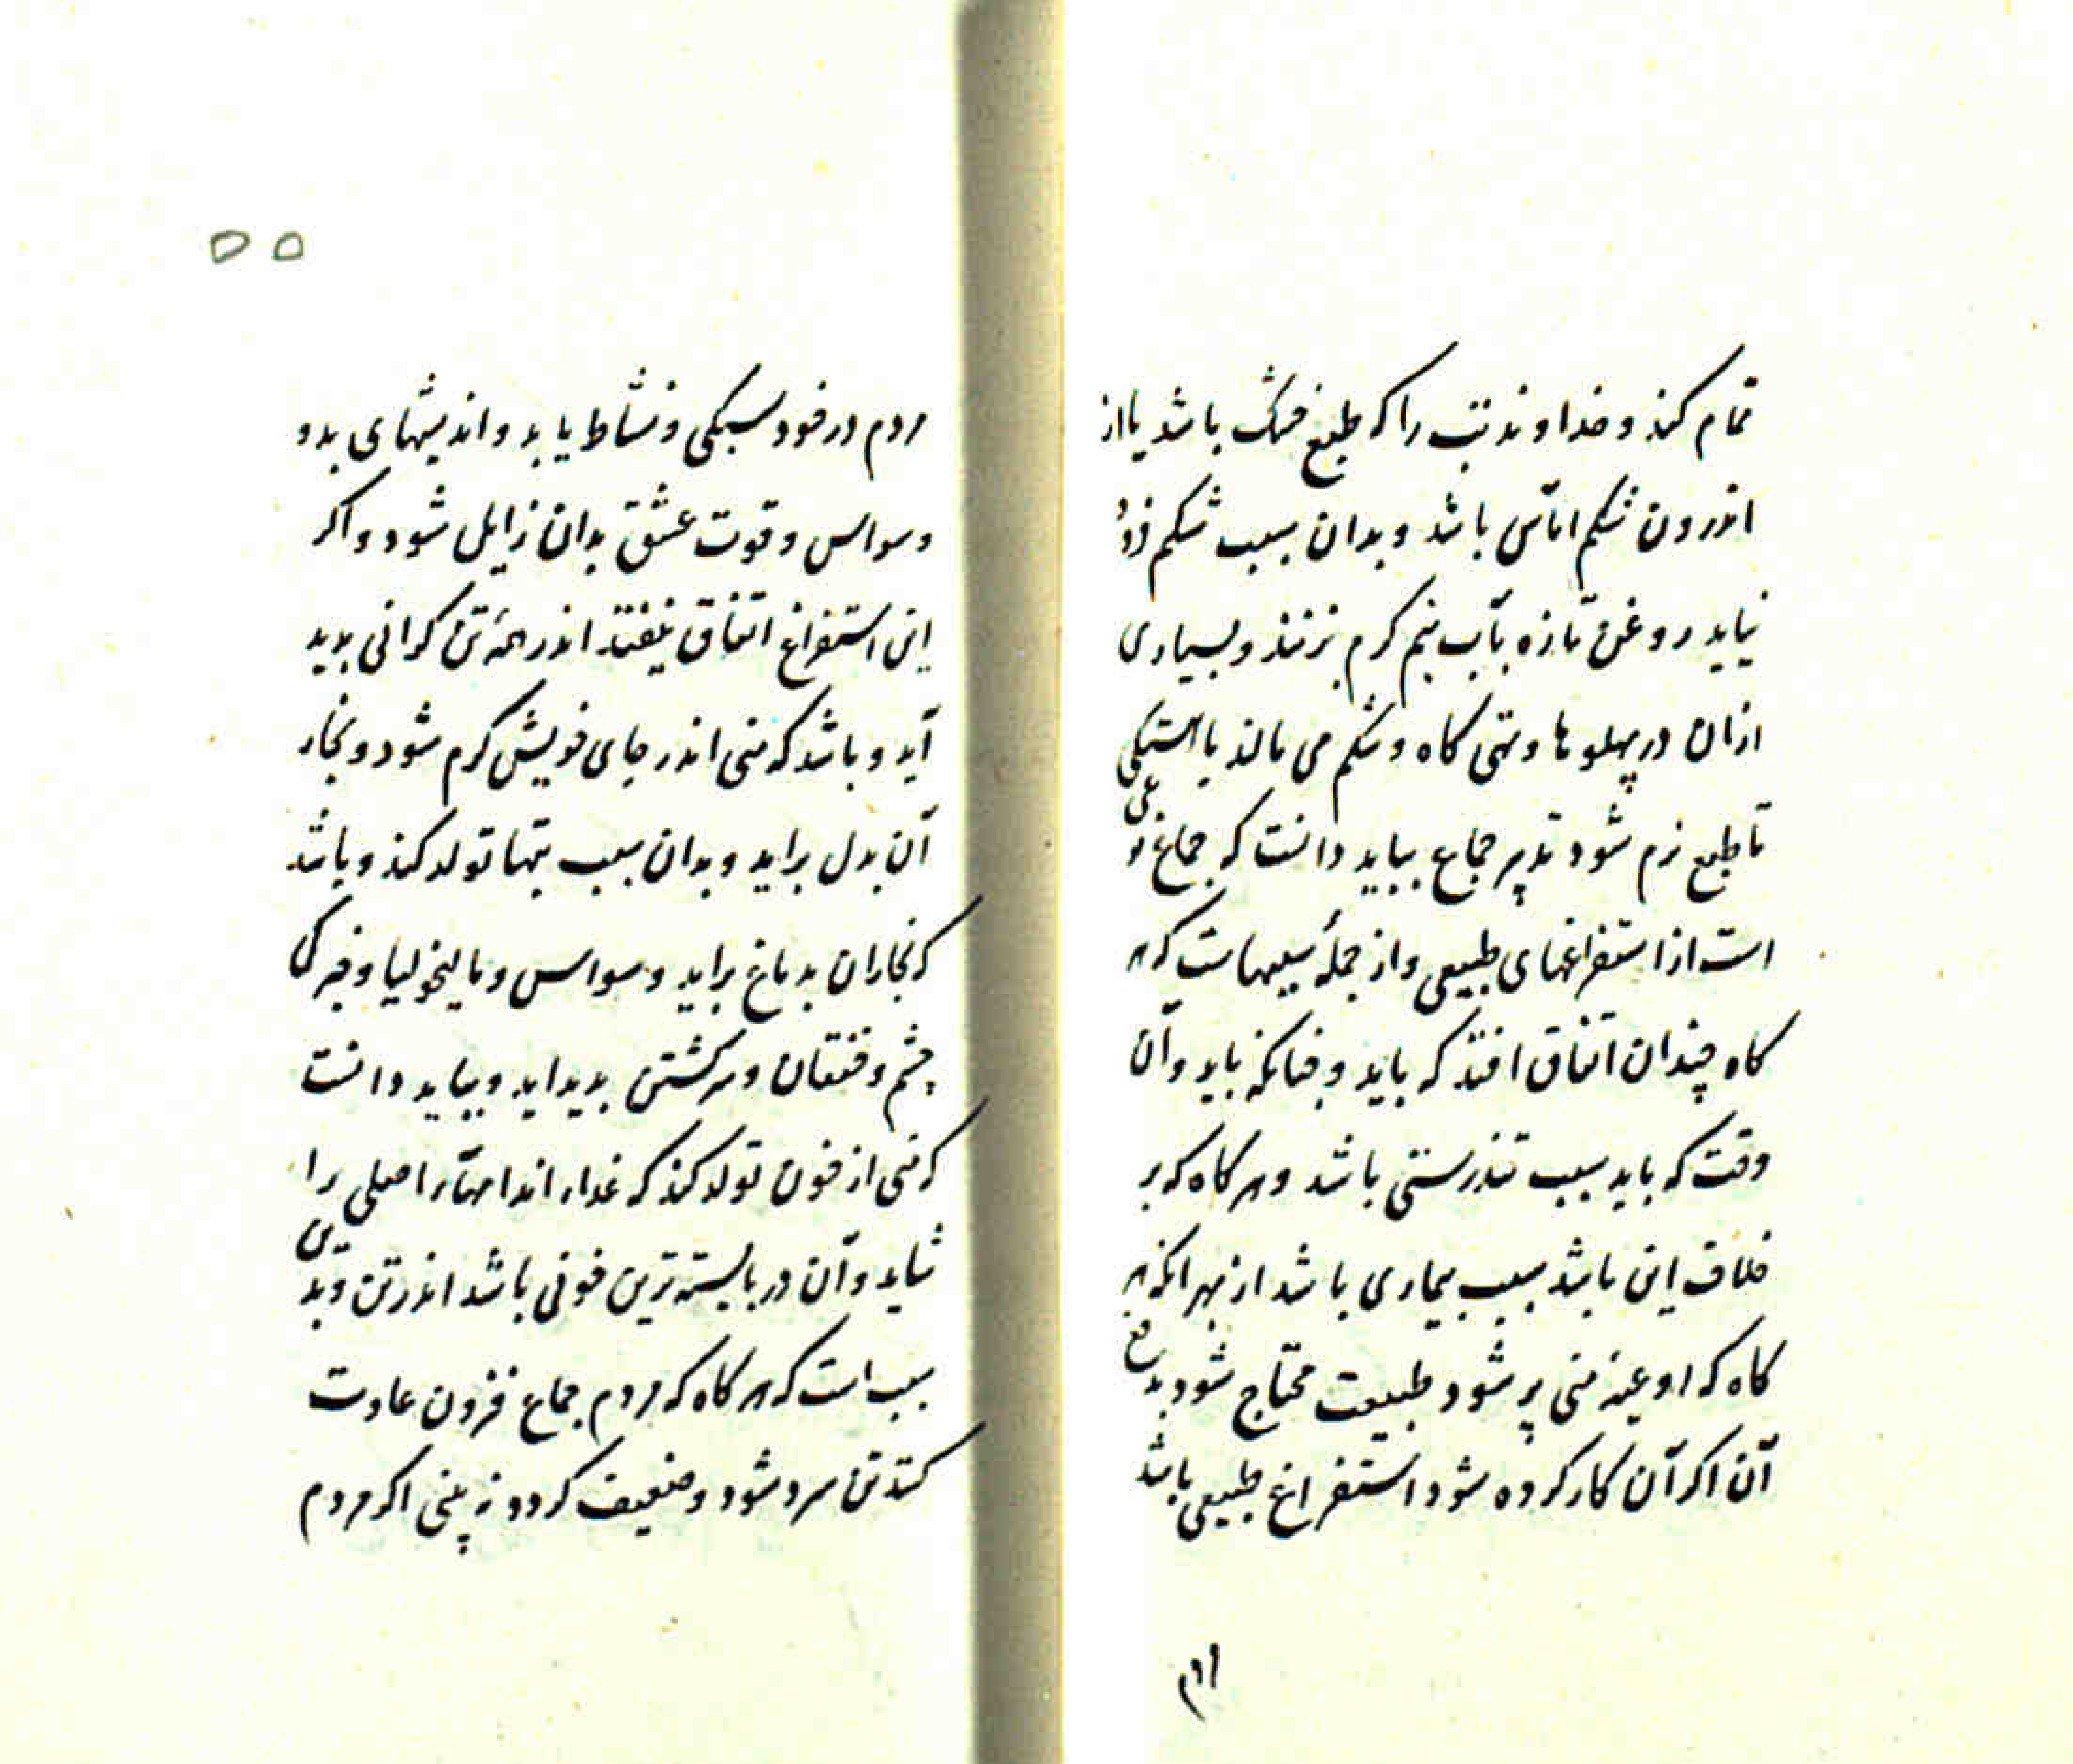 تمام کند و خداوند تب را که طبع خشک باشد یا از
اندرون شکم اماسی باشد و بدان سبب شکم فرو
نیاید روغن تازه بآب نیم کرم بزنند و بسیاری
ازان در پهلوها و تهی کاه و شکم می مالند باهستکی
تا طبع نرم شود تدبیر جماع بباید دانست که جماع نوعی
است از استفراغهای طبیعی و از جملهٔ سببهاست که هر
کاه چندان اتفاق افتد که باید و چنانکه باید و آن
وقت که باید سبب تندرستی باشد و هر کاه که بر
خلاف این باشد سبب بیماری باشد از بهر انکه هر
کاه که اوعیه منی پر شود طبیعت محتاج شود بدفع
آن اکر آن کار کرده شود استفراغ طبیعی باشد
۵۵
مردم در خود سبکی و نشاط یابد و اندیشهای بد و
وسواس و قوت عشق بدان زایل شود و اکر
این استفراغ اتفاق نیفتد اندر همه تن کرانی پدید
آید و باشد که منی اندر جای خویش کرم شود و بخار
آن بدل براید و بدان سبب تبها تولد کند و باشد
که بخاران بدماغ براید و وسواس و مالیخولیا و خیرکی
چشم و خفقان و سرکشتن پدید اید و بباید دانست
که منی از خون تولد کند که غداء اندامهاء اصلی را
شاید و آن دربایسته ترین خونی باشد اندر تن و بدین
سبب است که هر کاه که مردم جماع فزون عادت
کند تن سرد شود و ضعیف کردد نه بینی اکر مردم